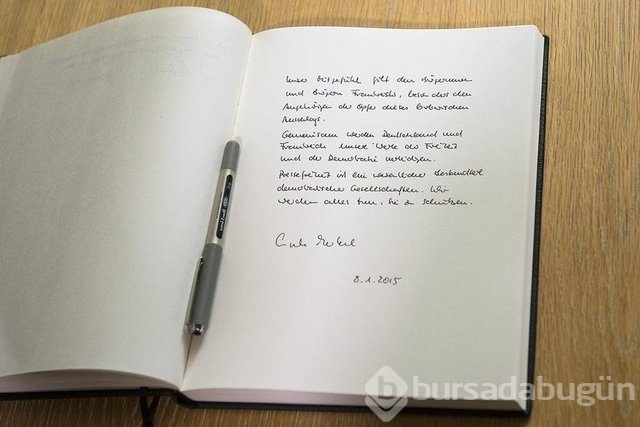 Unser Mitgefühl gilt den Bürgerinnen
und Bürgern Frankreichs, besonders den
Angehörigen der Opfer dieses barbarischen
Anschlags.
Gemeinsam werden Deutschland und
Frankreich unsere Werte der Freiheit
und der Demokratie verteidigen.
Pressefreiheit ist ein wesentlicher Bestandteil
demokratischer Gesellschaften. Wir
werden alles tun, sie zu schützen.
Angela Merkel
8.1.2015
bursadabugün